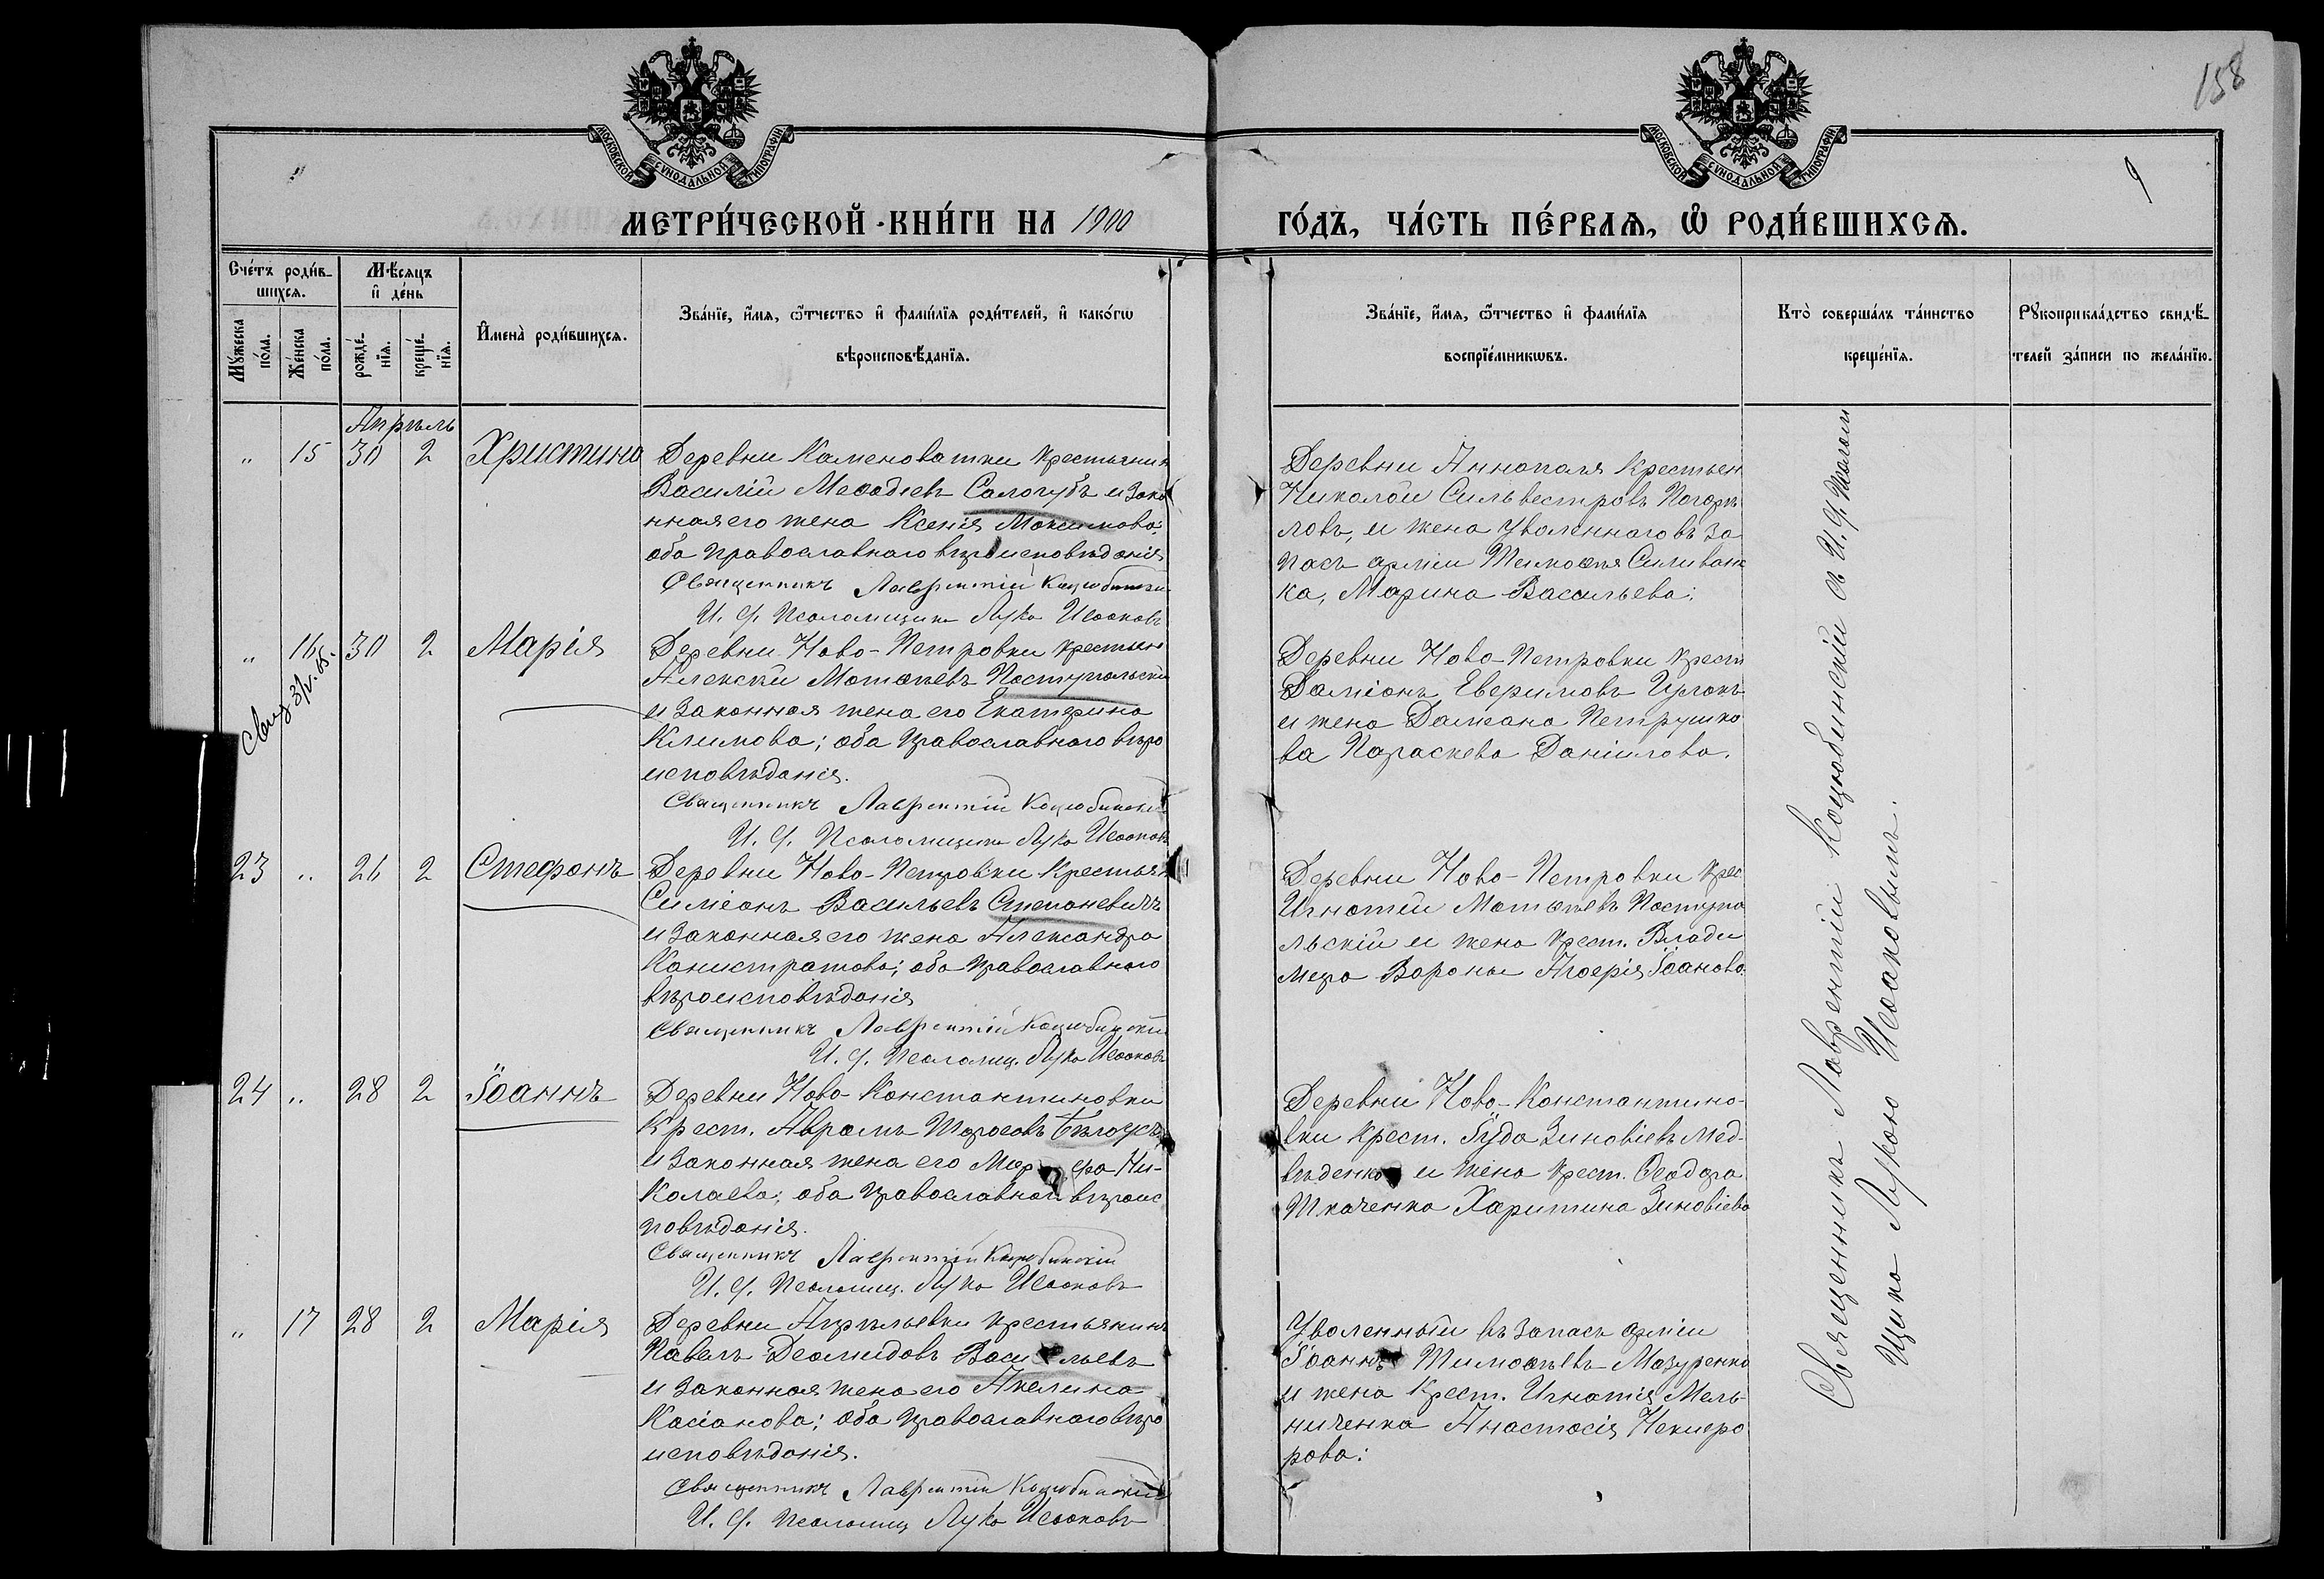 158
МОСКОВСКОЙ СѴНОДАЛЬНОЙ ТИПОГРАФІИ
МОСКОВСКОЙ СѴНОДАЛЬНОЙ ТИПОГРАФІИ
9
МЕТРИ́ЧЕСКОЙ КНИ́ГИ НА 1900
ГО́ДЪ, ЧА́СТЬ ПЕ́РВАѦ, Ѽ РОДИ́ВШИХСѦ.
Сче́тъ роди́в-
шихсѧ.
Мꙋ́жеска по́ла.
Же́нска по́ла.
Мѣ́сяцъ
и҆ де́нь
рожде́-нїѧ.
креще́-нїѧ.
И҆мена̀ роди́вшихсѧ.
Зва́нїе, и҆́мѧ, ѻ҆́тчество и҆ фами́лїѧ роди́телей, и҆ како́гѡ
вѣроисповѣ́данїѧ.
Зва́нїе, и҆́мѧ, ѻ҆́тчество и҆ фами́лїѧ
воспрїе́мникѡвъ.
Кто̀ соверша́лъ та́инство
креще́нїѧ.
Рꙋкоприкла́дство свидѣ́-
телей за́писи по жела́нїю.
Апрѣль
„ 15 30 2 Христина
Деревни Каменоватки крестьянин
Василій Меѳодіевъ Сологубъ и зако
нная его жена Ксенія Максимова;
оба православнаго вѣроисповѣданія
Священникъ Лаврентій Коцюбински
И. д. Псаломщика Лука Исааковъ
Деревни Аннополя Крестьян
Николай Сильвестровъ
ловъ, и жена уволеннаго въ за
пасъ арміи Тимоѳея Силиван
ка, Марина Васильева;
„ 16 30 2 Марія
Деревни Ново-Петровки крестьян
Алексѣй Матѳеевъ Поступальскій
и законная жена его Екатерина
Климова; оба православнаго вѣро
исповѣданія.
Священникъ Лаврентій Коцюбински
И. д. Псаломщика Лука Исааковъ
Деревни Ново-Петровки Крест
Даміанъ
и жена Даміана Петрушко
ва Параскева Даніилова.
23 „ 26 2 Стефанъ
Деревни Ново-Петровки Крестьян
Симеонъ Васильевъ Степаневичъ
и законная его жена Александра
Канистратова; оба православнаго
вѣроисповѣданія
Священникъ Лаврентій Коцюбинскій
И. д. Псаломщ. Лука Исааковъ
Деревни Ново-Петровки Крес
Игнатій Матѳеевъ Поступа
льскій и жена крест. Влади
мера Вороны Іоанова.
24 „ 28 2 Іоаннъ
Деревни Ново-Константиновки
Крест. Аврамъ Тарасовъ Бѣлоусъ
и законная жена его Ни-
колаева; оба православнаго вѣроис
повѣданія.
Священникъ Лаврентій Коцюбинскій
И. д. Псаломщ. Лука Исааковъ
Деревни Ново-Константино-
вки Крест. Іуда Зиновіевъ Мед-
вѣденко и жена крест. Ѳеодора
Ткаченка Харитина Зиновіева
„ 17 28 2 Марія
Деревни Апрѣльевки крестьянинъ
Павелъ Деомидовъ Васильевъ
и законная жена его Акелина
Касіанова; оба православнаго вѣро
исповѣданія.
Священникъ Лаврентій Коцюбинскій
И. д. Псаломщ Лука Исааковъ
Уволенный въ запасъ арміи
Іоаннъ Тимоѳеевъ Мазуренко
и жена Крест. Игнатія Мель-
ниченка Анастасія
рова;
Священникъ Лаврентій Коцюбинскій съ И. д. Псалом
щика Лукою Исааковымъ.